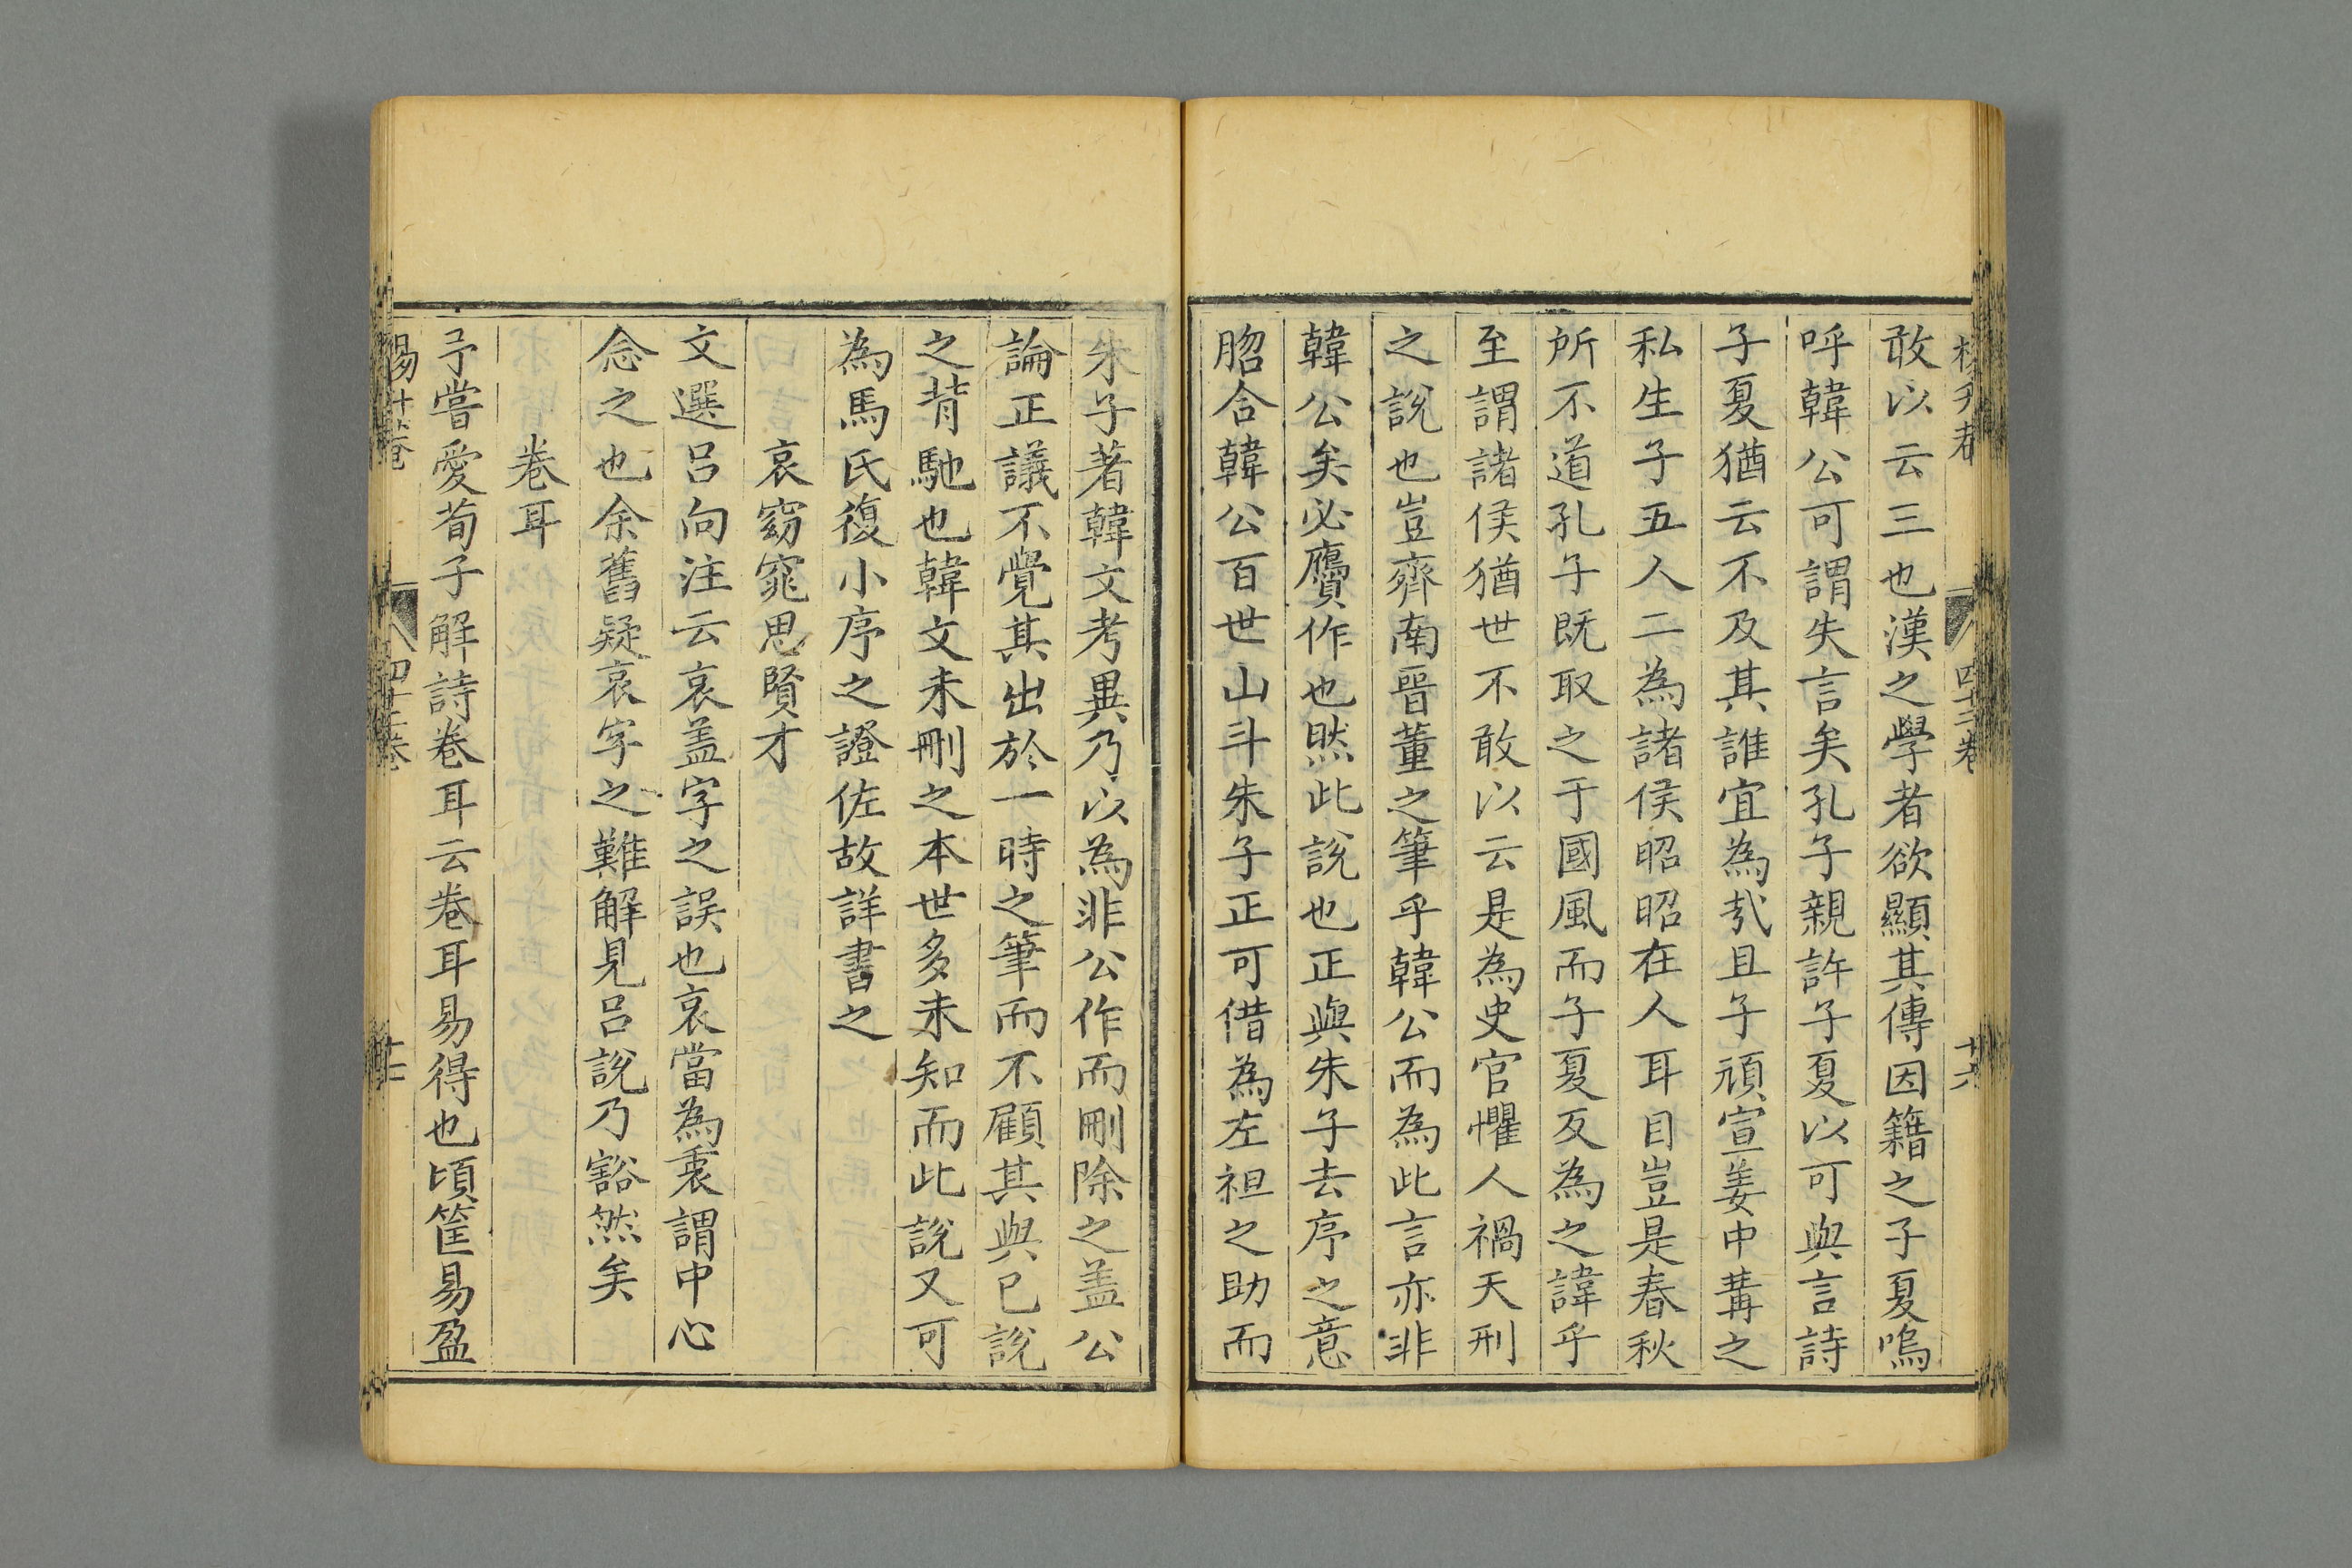 敢以云三也漢之學者欲顯其傳因籍之子夏嗚
呼韓公可謂失言矣孔子親許子夏以可與言詩
子夏猶云不及其誰宜為㢤且子頑宣姜中冓之
私生子五人二為諸侯昭昭在人耳目豈是春秋
所不道孔子既取之于國風而子夏反為之諱乎
至謂諸侯猶世不敢以云是為史官懼人禍天刑
之說也豈齊南晉董之筆乎韓公而為此言亦非
韓公矣必贗作也然此說也正與朱子去序之意
脗合韓公百世山斗朱子正可借為左袒之助而
朱子著韓文考異乃以為非公作而刪除之盖公
論正議不覺其出於一時之筆而不顧其與已說
之背馳也韓文未刪之本世多未知而此說又可
為馬氏復小序之證佐故詳書之
哀窈窕思賢才
文選呂向注云哀盖字之誤也哀當為衷謂中心
念之也余舊疑哀字之難解見呂說乃豁然矣
卷耳
予嘗愛荀子解詩卷耳云卷耳易得也頃筐易盈